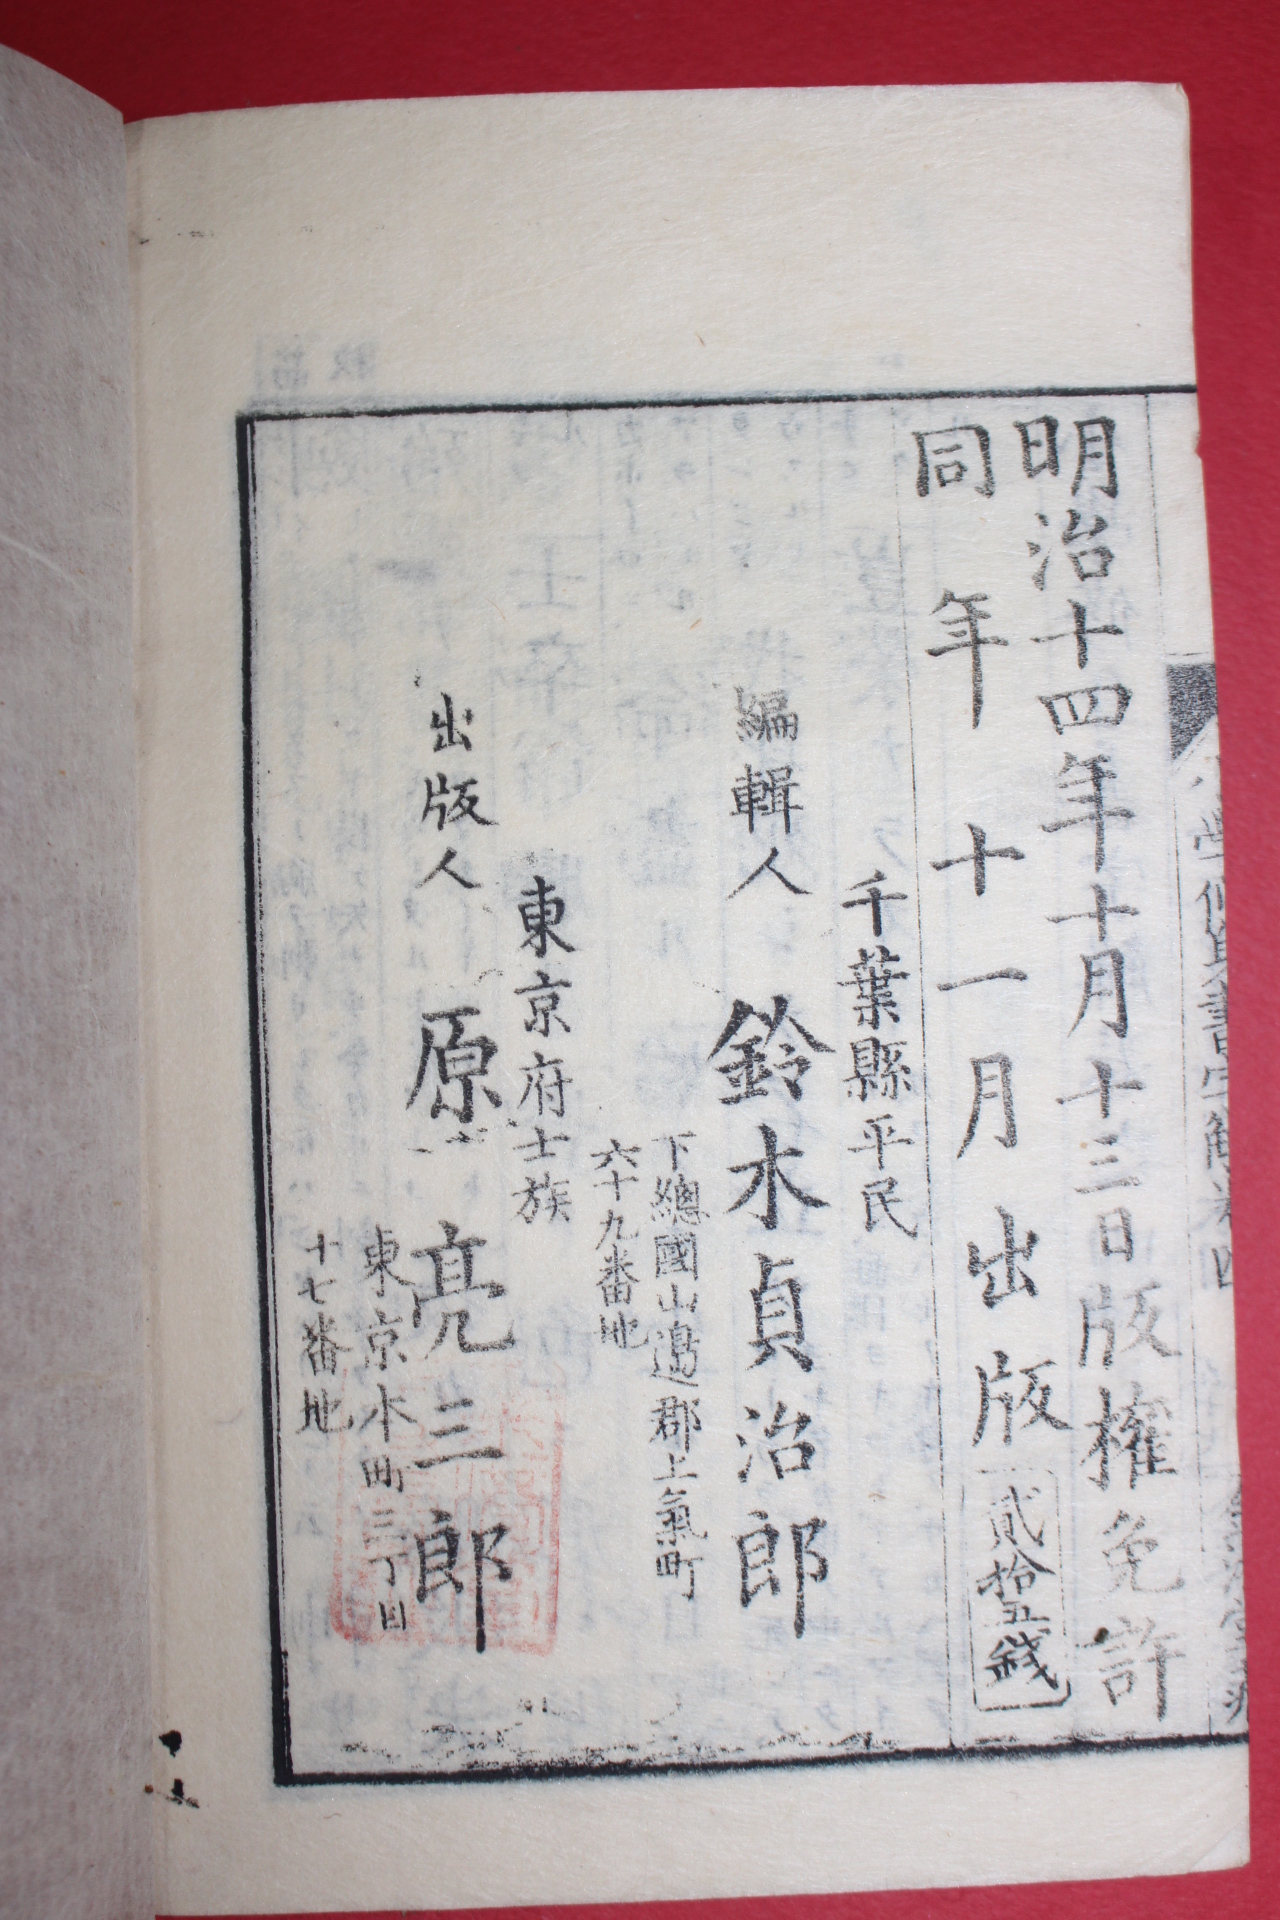 明治十四年十月十三日版權免許
同年十一月出版
貳拾五錢
千葉縣平民
編輯人 鈴木貞治郎
下總國山邉郡土氣町
六十九番地
東京府士族
出版人 原亮三郎
東京本町三丁目
十七番地